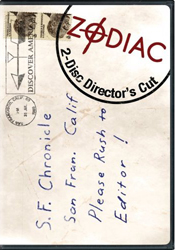 ZODIAC
2-Disc Director's Cut
DISCOVER AMERICA
S.F. Chronicle
San Fran. Calif
Please Rush to
Editor!